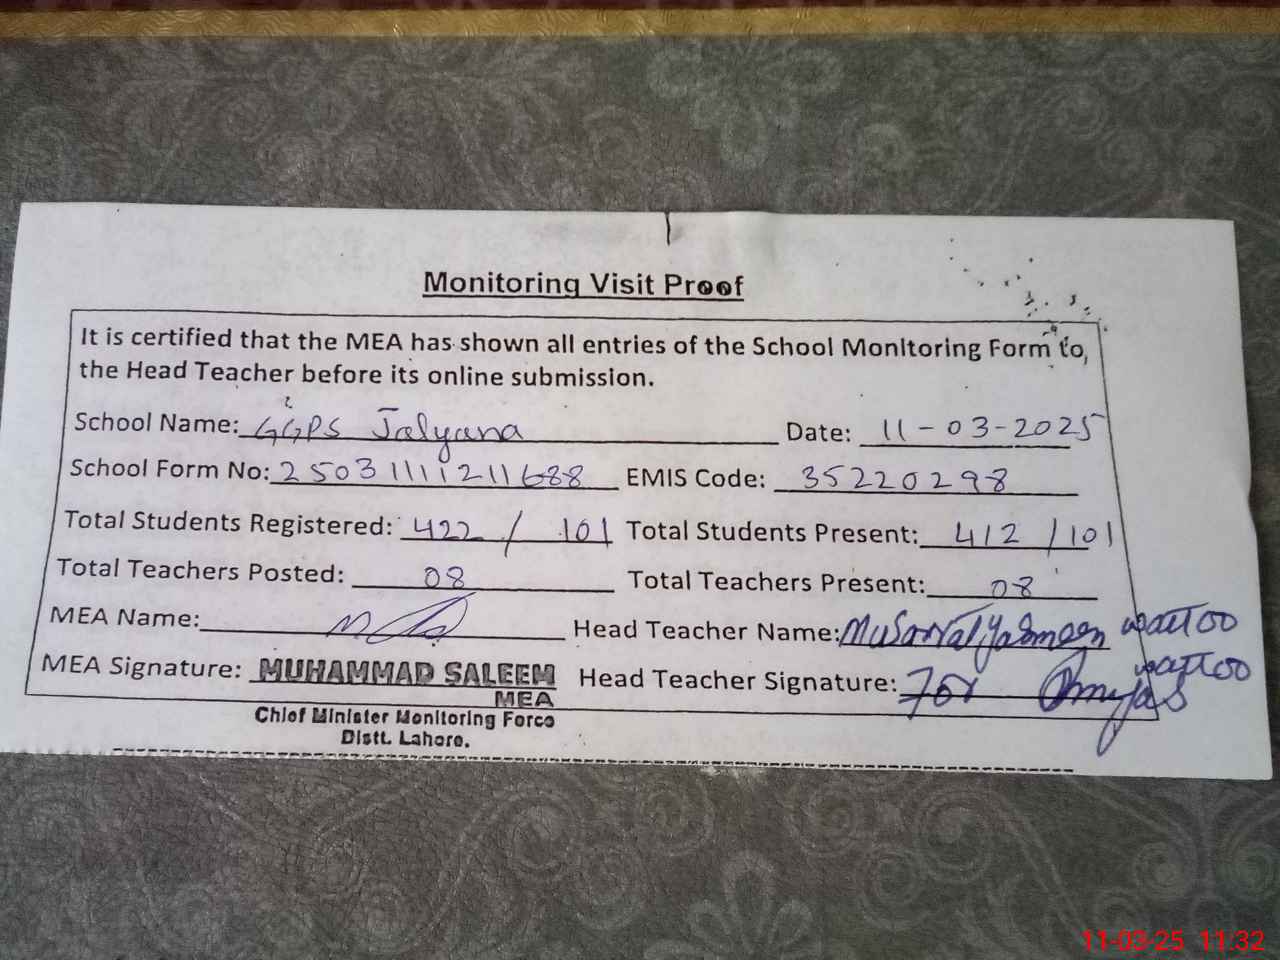 Monitoring Visit Proof
It is certified that the MEA has shown all entries of the School Monitoring Form to,
the Head Teacher before its online submission.
School Name: GGPS Jalyana Date: 11-03-2025
School Form No: 250311111211688 EMIS Code: 35220298
Total Students Registered: 422 / 101 Total Students Present: 412 / 101
Total Teachers Posted: 08 Total Teachers Present: 08
MEA Name: Head Teacher Name: Musarrat Yasmeen wattoo
MEA Signature: MUHAMMAD SALEEM Head Teacher Signature: For wattoo
MEA
Chief Minister Monitoring Force
Distt. Lahore.
11-03-25 11:32